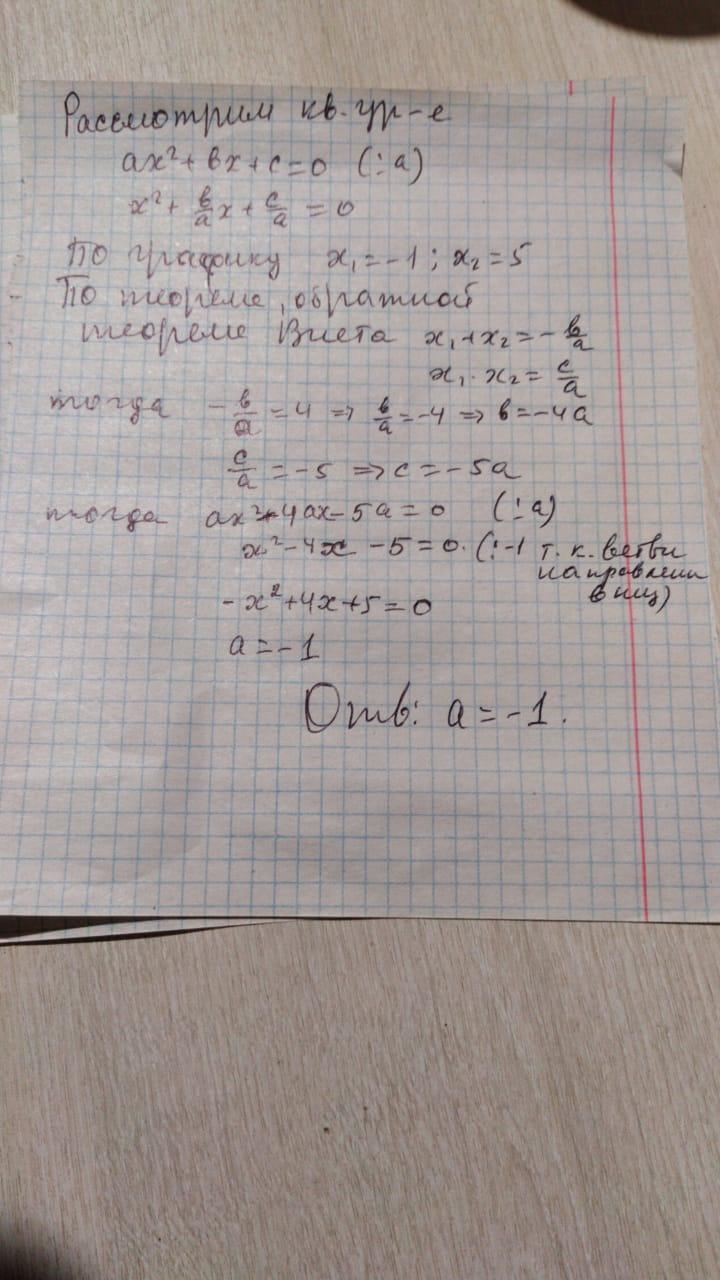 Рассмотрим кв. ур-е
ax² + bx + c = 0 (:a)
x² + b/a x + c/a = 0
По графику x₁ = -1; x₂ = 5
По теореме, обратной
теореме Виета x₁ + x₂ = - b/a
x₁ · x₂ = c/a
тогда - b/a = 4 => b/a = -4 => b = -4a
c/a = -5 => c = -5a
тогда ax² - 4ax - 5a = 0 (:a)
x² - 4x - 5 = 0. (: -1 т. к. ветви
направлены
вниз)
-x² + 4x + 5 = 0
a = -1
Отв: a = -1.